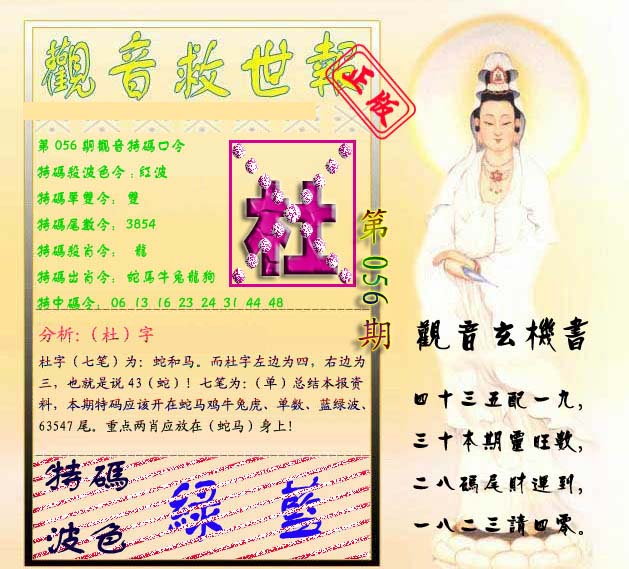 觀音救世報
正版
第 056 期觀音特碼口令
特碼殺波色令：紅波
特碼單雙令： 雙
特碼尾數令： 3854
特碼殺肖令： 龍
特碼出肖令： 蛇馬牛兔龍狗
特中碼令： 06 13 16 23 24 31 44 48
杜
第 056 期
分析:（杜）字
杜字（七笔）为：蛇和马。而杜字左边为四，右边为
三，也就是说 43（蛇）！七笔为：（单）总结本报资
料，本期特码应该开在蛇马鸡牛兔虎、单数、蓝绿波、
63547 尾。重点两肖应放在（蛇马）身上！
特碼
波色
綠 藍
觀音玄機書
四十三五配一九，
三十本期靈旺數，
二八碼尾財運到，
一八二三請四零。